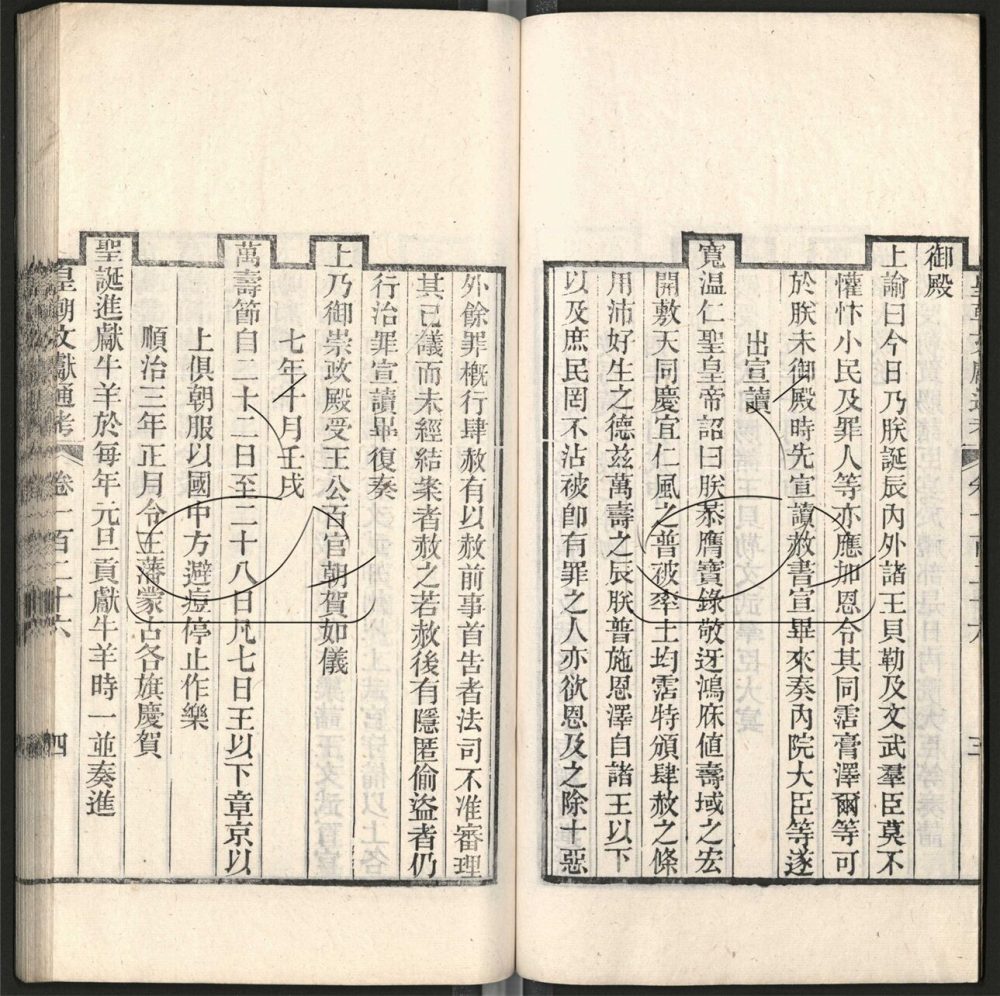 御殿
上諭曰今日乃朕誕辰內外諸王貝勒及文武羣臣莫不
懽忭小民及罪人等亦應加恩令其同霑膏澤爾等可
於朕未御殿時先宣讀赦書宣畢來奏內院大臣等遂
出宣讀
寬温仁聖皇帝詔曰朕恭膺寶錄敬迓鴻庥値壽域之宏
開敷大同慶宜仁風之普被率土均霑特頒肆赦之條
用沛好生之德茲萬壽之辰朕普施恩澤自諸王以下
以及庶民罔不沾被卽有罪之人亦欲恩及之除十惡
外餘罪槪行肆赦有以赦前事首告者法司不准審理
其已議而未經結案者赦之若赦後有隱匿偷盜者仍
行治罪宣讀畢復奏
上乃御崇政殿受王公百官朝賀如儀
七年十月壬戌
萬壽節自二十二日至二十八日凡七日王以下章京以
上俱朝服以國中方避痘停止作樂
順治三年正月令王藩蒙古各旗慶賀
聖誕進獻牛羊於每年元旦貢獻牛羊時一並奏進
皇朝文獻通考 卷一百二十六 四